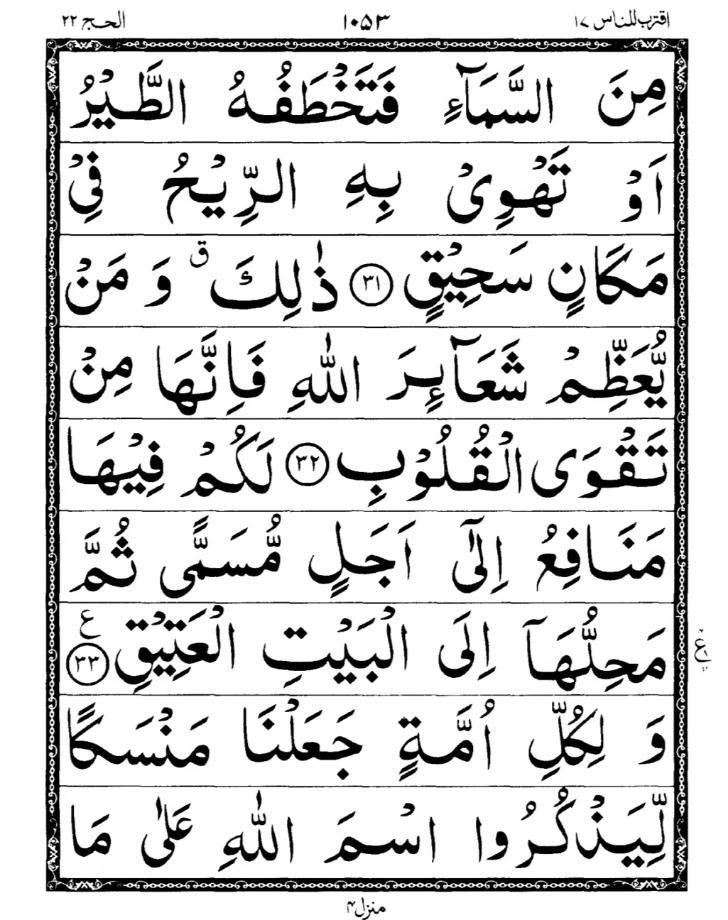 اقترب للناس ۱۷ ۱۰۵۳ الحج ۲۲
مِنَ السَّمَآءِ فَتَخْطَفُهُ الطَّيْرُ
اَوْ تَهْوِیْ بِهِ الرِّيْحُ فِیْ
مَكَانٍ سَحِيْقٍ ﴿۳۱﴾ ذٰلِكَ ۗ وَ مَنْ
يُّعَظِّمْ شَعَآئِرَ اللّٰهِ فَاِنَّهَا مِنْ
تَقْوَی الْقُلُوْبِ ﴿۳۲﴾ لَكُمْ فِيْهَا
مَنَافِعُ اِلٰۤی اَجَلٍ مُّسَمًّی ثُمَّ
مَحِلُّهَاۤ اِلَی الْبَيْتِ الْعَتِيْقِ ﴿۳۳﴾ ع
وَ لِكُلِّ اُمَّةٍ جَعَلْنَا مَنْسَكًا
لِّيَذْكُرُوا اسْمَ اللّٰهِ عَلٰی مَا
منزل۴